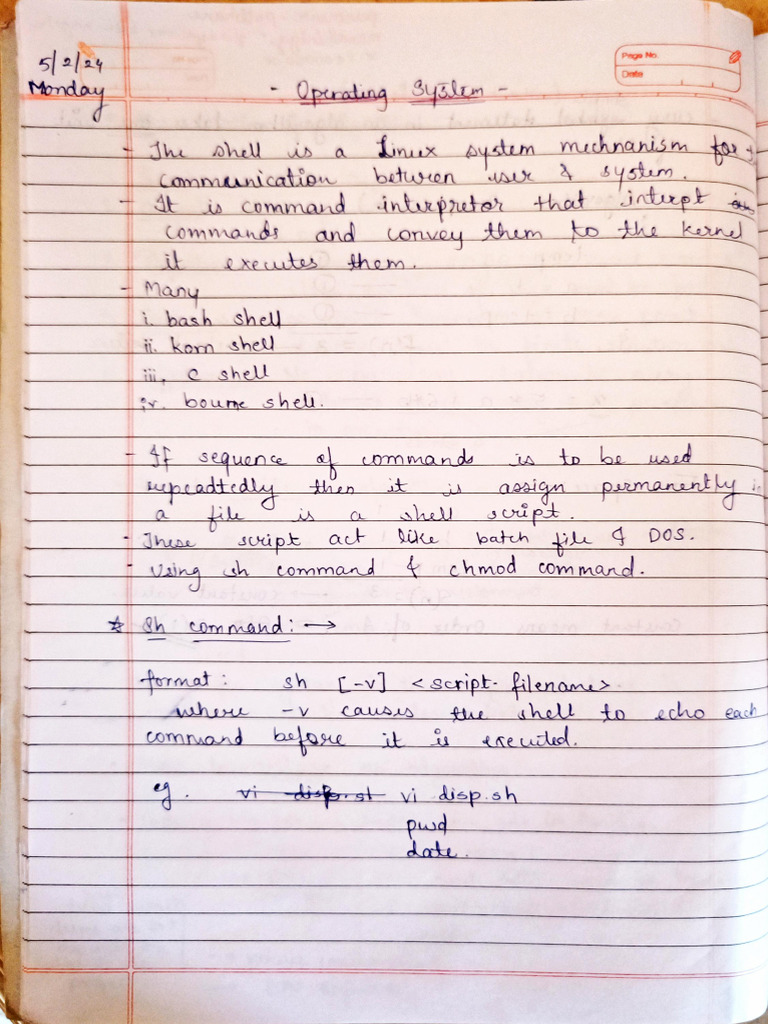 5/2/24
Page No.
Date
Monday
- Operating System -
- The shell is a Linux system mechnanism for
communication between user & system.
- It is command interpretor that interpt
commands and convey them to the kernel
it executes them.
- Many
i. bash shell
ii. korn shell
iii, c shell
iv. bourne shell.
- If sequence of commands is to be used
repeadtedly then it is assign permanently
a file is a shell script.
- These script act like batch file of DOS.
- Using sh command & chmod command.
* Sh command: →
format: sh [-v] <script-filename>
where -v causes the shell to echo each
command before it is executed.
eg. vi disp.sh
pwd
date.